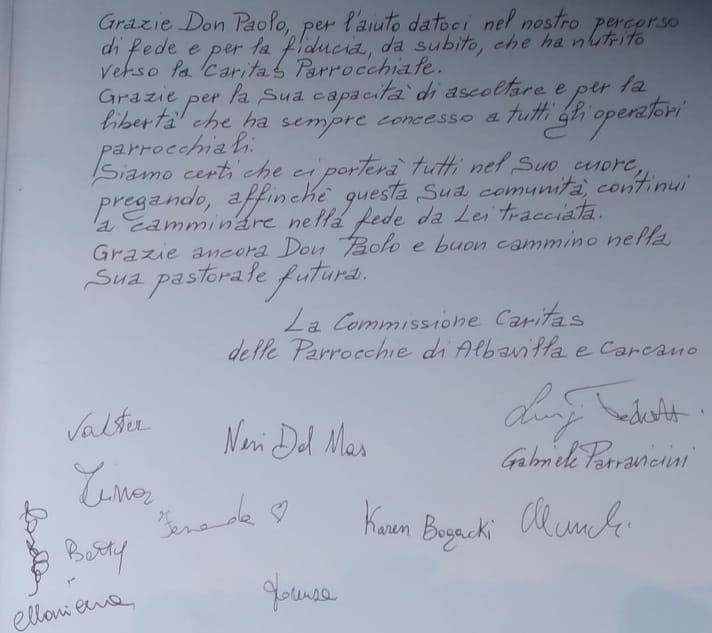 Grazie Don Paolo, per l'aiuto datoci nel nostro percorso
di fede e per la fiducia, da subito, che ha nutrito
verso la Caritas Parrocchiale.
Grazie per la Sua capacità di ascoltare e per la
libertà che ha sempre concesso a tutti gli operatori
parrocchiali.
Siamo certi che ci porterà tutti nel Suo cuore,
pregando, affinchè questa Sua comunità, continui
a camminare nella fede da Lei tracciata.
Grazie ancora Don Paolo e buon cammino nella
Sua pastorale futura.
La Commissione Caritas
delle Parrocchie di Albavilla e Carcano
Valter
Neri Dal Mas
Luigi
Gabriele Parravicini
Karen Bogacki
Betty